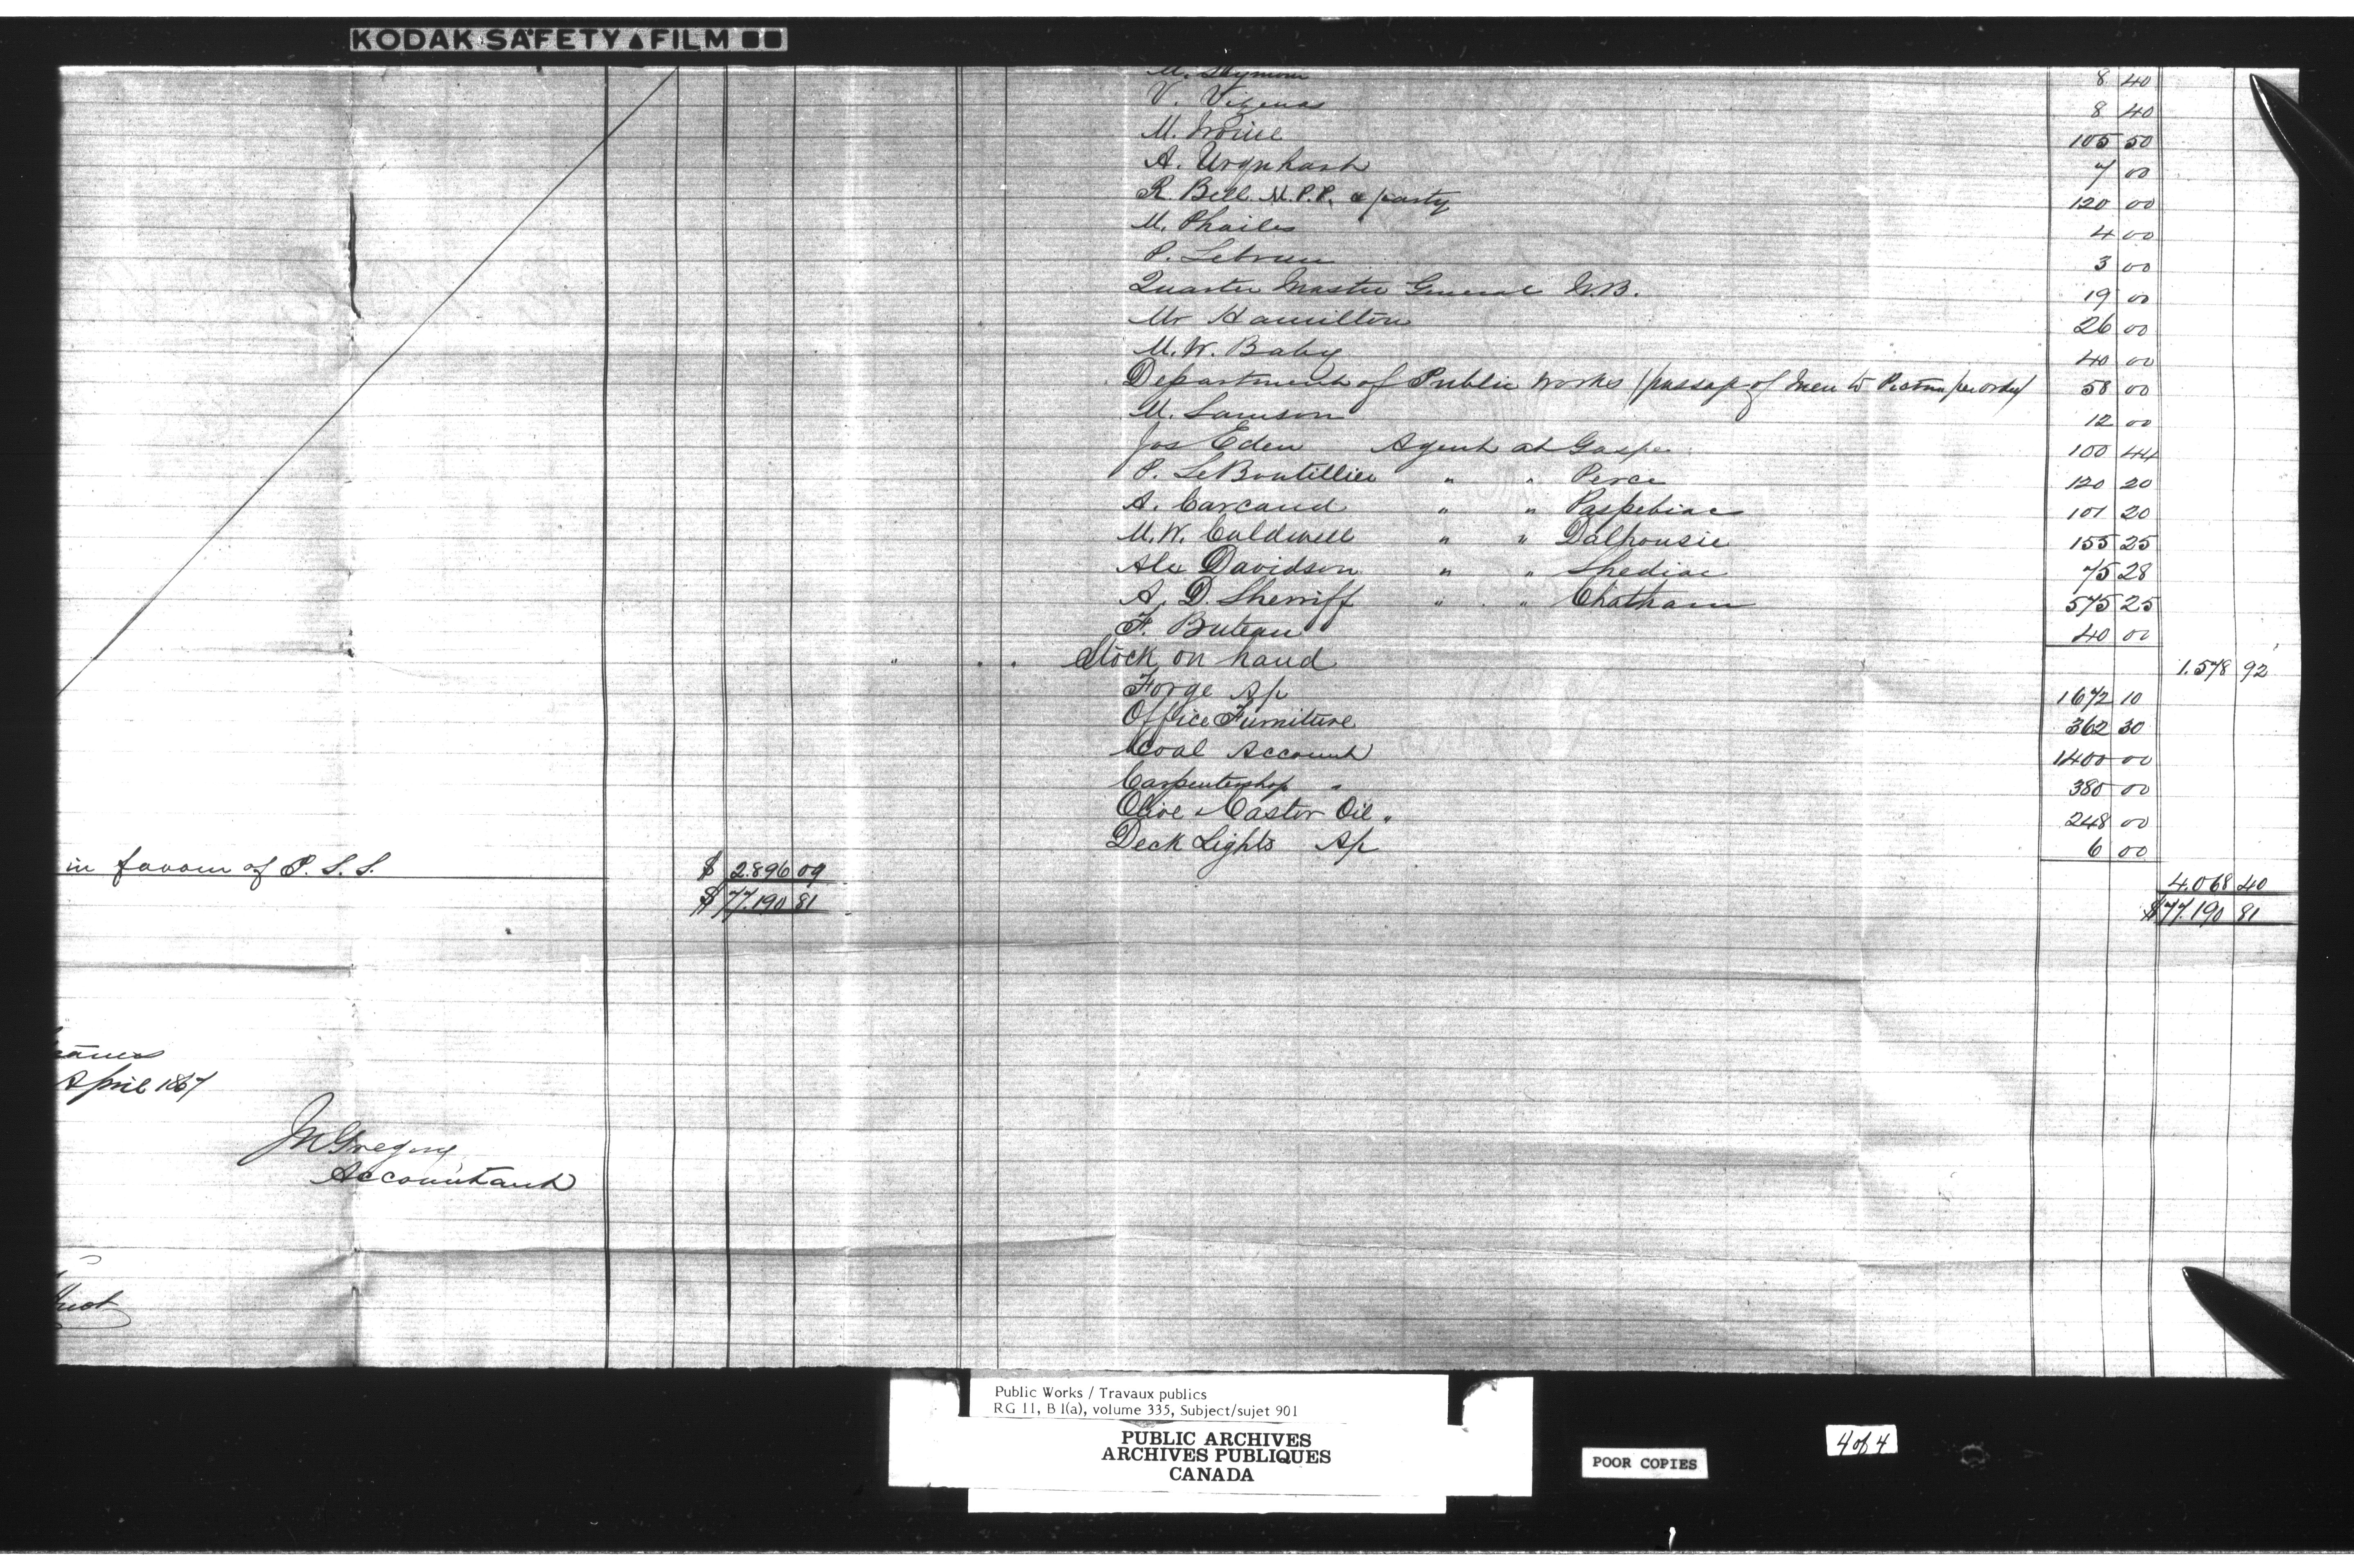 KODAK SAFETY ▲ FILM
M. Seymour 8 40
V. Vigneas 8 40
M. Irvine 105 50
A. Urquhart 7 00
R. Bell M.P.P. & party 120 00
M. Phailes 4 00
P. Lebrun 3 00
Quarter Master General N.B. 19 00
Mr Hamilton 26 00
M. W. Baby 40 00
Department of Public Works (passage of men to Pictou per order) 58 00
M. Samson 12 00
Jos Eden Agent at Gaspe 100 44
P. LeBoutillier " " Perce 120 20
A. Carcaud " " Paspebiac 101 20
M. W. Caldwell " " Dalhousie 155 25
Alex Davidson " " Shediac 75 28
A. D. Sherriff " " Chatham 575 25
F. Buteau 40 00
" Stock on hand 1.578 92
Forge A/c 1672 10
Office Furniture 362 30
Coal Account 1400 00
Carpentershop " 380 00
Olive & Castor Oil " 248 00
Deck Lights A/c 6 00
in favour of P. S. S. $ 2.896 09 4.068 40
$ 77.190 81 $ 77.190 81
April 1867
JN Gregory
Accountant
Public Works / Travaux publics
RG 11, B 1(a), volume 335, Subject/sujet 901
PUBLIC ARCHIVES
ARCHIVES PUBLIQUES
CANADA
POOR COPIES
4 of 4